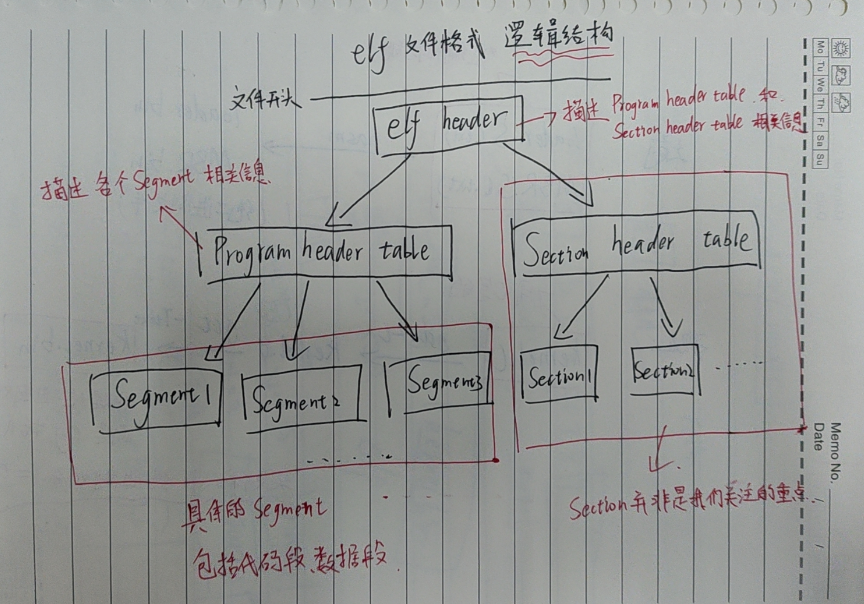 elf 文件格式 逻辑结构
文件开头
elf header
描述 Program header table 和
Section header table 相关信息
描述 各个Segment 相关信息
Program header table
Section header table
Segment1
Segment2
Segment3
......
Section1
Section2
......
具体的 Segment
包括代码段、数据段.
Section并非是我们关注的重点.
Mo Tu We Th Fr Sa Su
Memo No.
Date / /